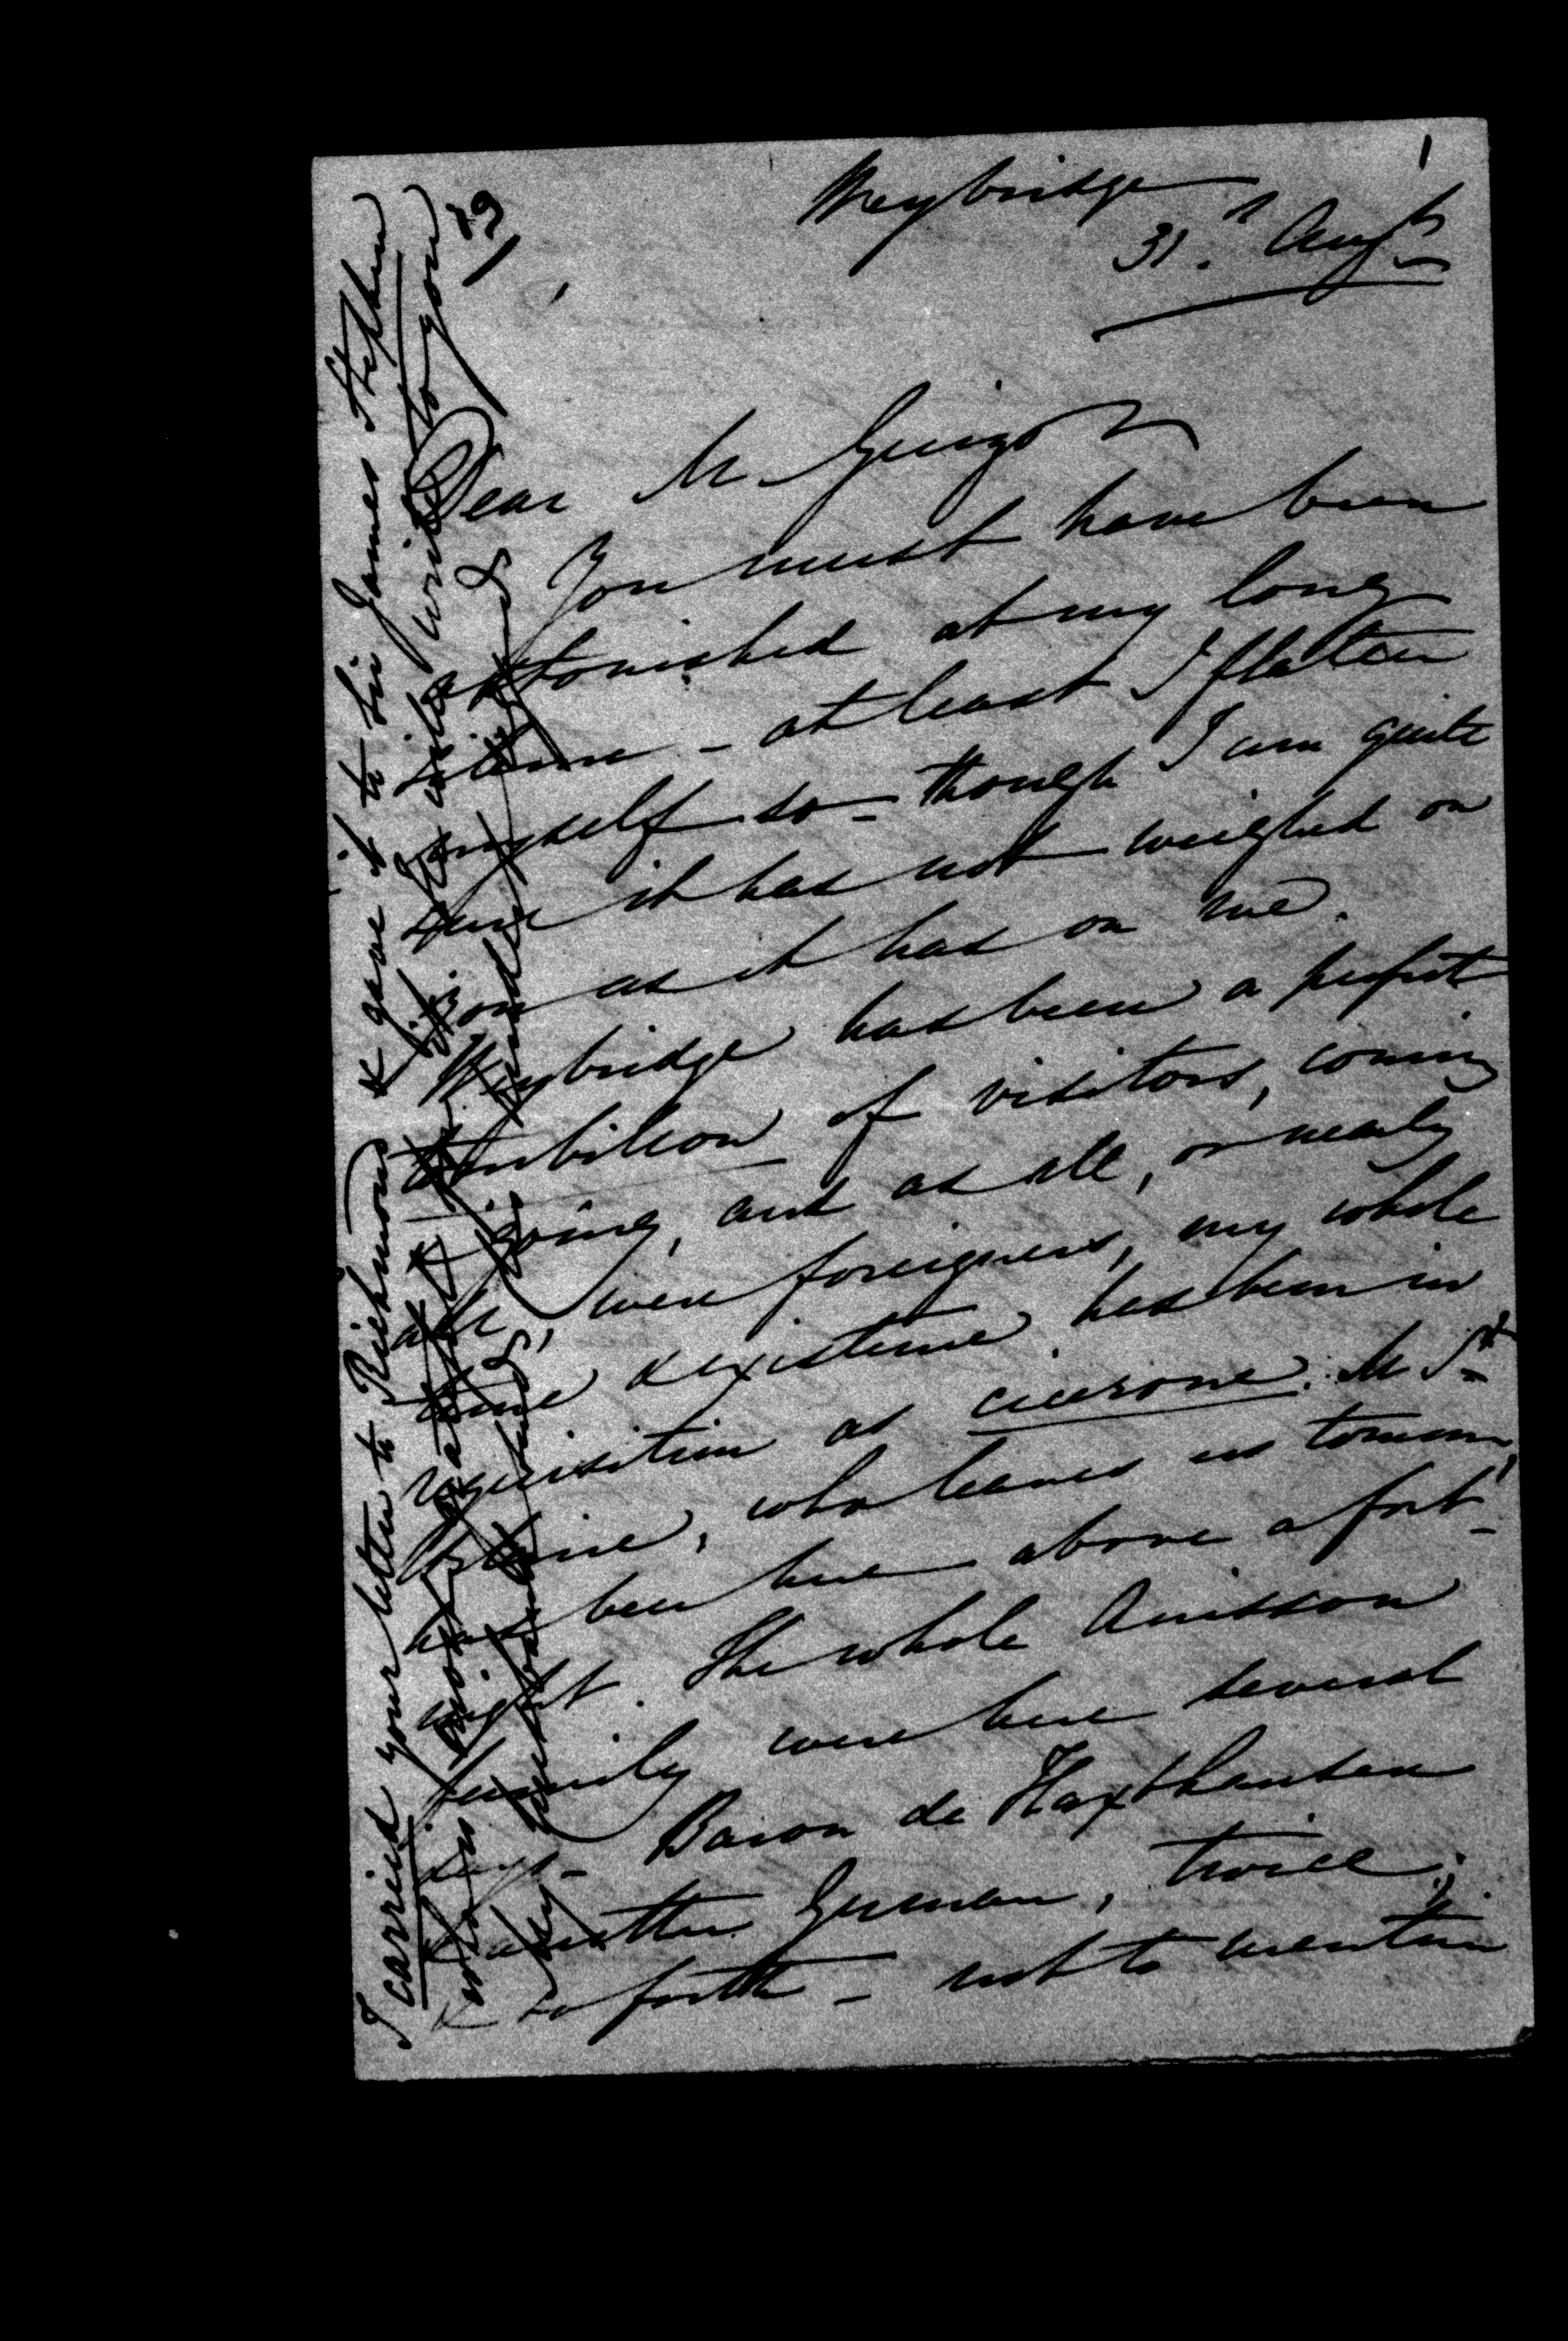 1
Weybridge
31st Augt
Dear M. Guizot
You must have been
astonished at my long
silence - at least I flatter
myself so - though I am quite
sure it has not weighed on
you as it has on me.
Weybridge has been a perfect
tourbillon of visitors, coming
& going, and as all, or nearly
all, were foreigners, my whole
time & existence has been in
requisition as cicerone. M. St
Hilaire, who leaves us tomorrow,
has been here above a fort-
night. The whole Anisson
family were here several
days - Baron de Haxthausen
& another German, twice;
& so forth - not to mention
I carried your letter to Richmond & gave it to Sir James Stephen
write to you
my husband's